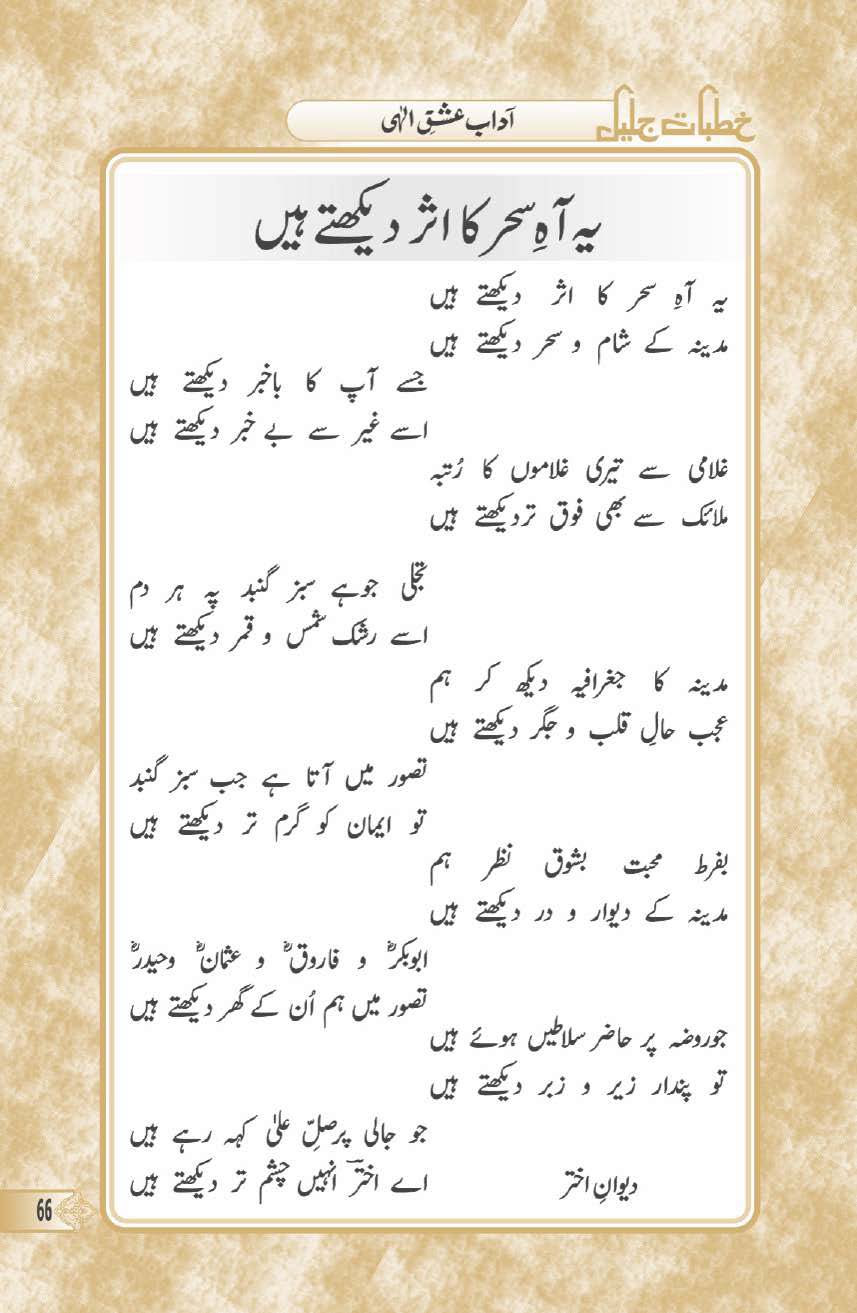 خطباتِ جلیل
آداب عشقِ الٰہی
یہ آہِ سحر کا اثر دیکھتے ہیں
یہ آہِ سحر کا اثر دیکھتے ہیں
مدینہ کے شام و سحر دیکھتے ہیں
جسے آپ کا باخبر دیکھتے ہیں
اسے غیر سے بے خبر دیکھتے ہیں
غلامی سے تیری غلاموں کا رُتبہ
ملائک سے بھی فوق تر دیکھتے ہیں
تجلی جو ہے سبز گنبد پہ ہر دم
اسے رشک شمس و قمر دیکھتے ہیں
مدینہ کا جغرافیہ دیکھ کر ہم
عجب حالِ قلب و جگر دیکھتے ہیں
تصور میں آتا ہے جب سبز گنبد
تو ایمان کو گرم تر دیکھتے ہیں
بفرط محبت بشوق نظر ہم
مدینہ کے دیوار و در دیکھتے ہیں
ابوبکرؓ و فاروقؓ و عثمانؓ وحیدرؓ
تصور میں ہم اُن کے گھر دیکھتے ہیں
جو روضہ پر حاضر سلاطیں ہوئے ہیں
تو پندار زیر و زبر دیکھتے ہیں
جو جالی پر صلِّ علیٰ کہہ رہے ہیں
اے اخترؔ انہیں چشم تر دیکھتے ہیں
دیوانِ اختر
66